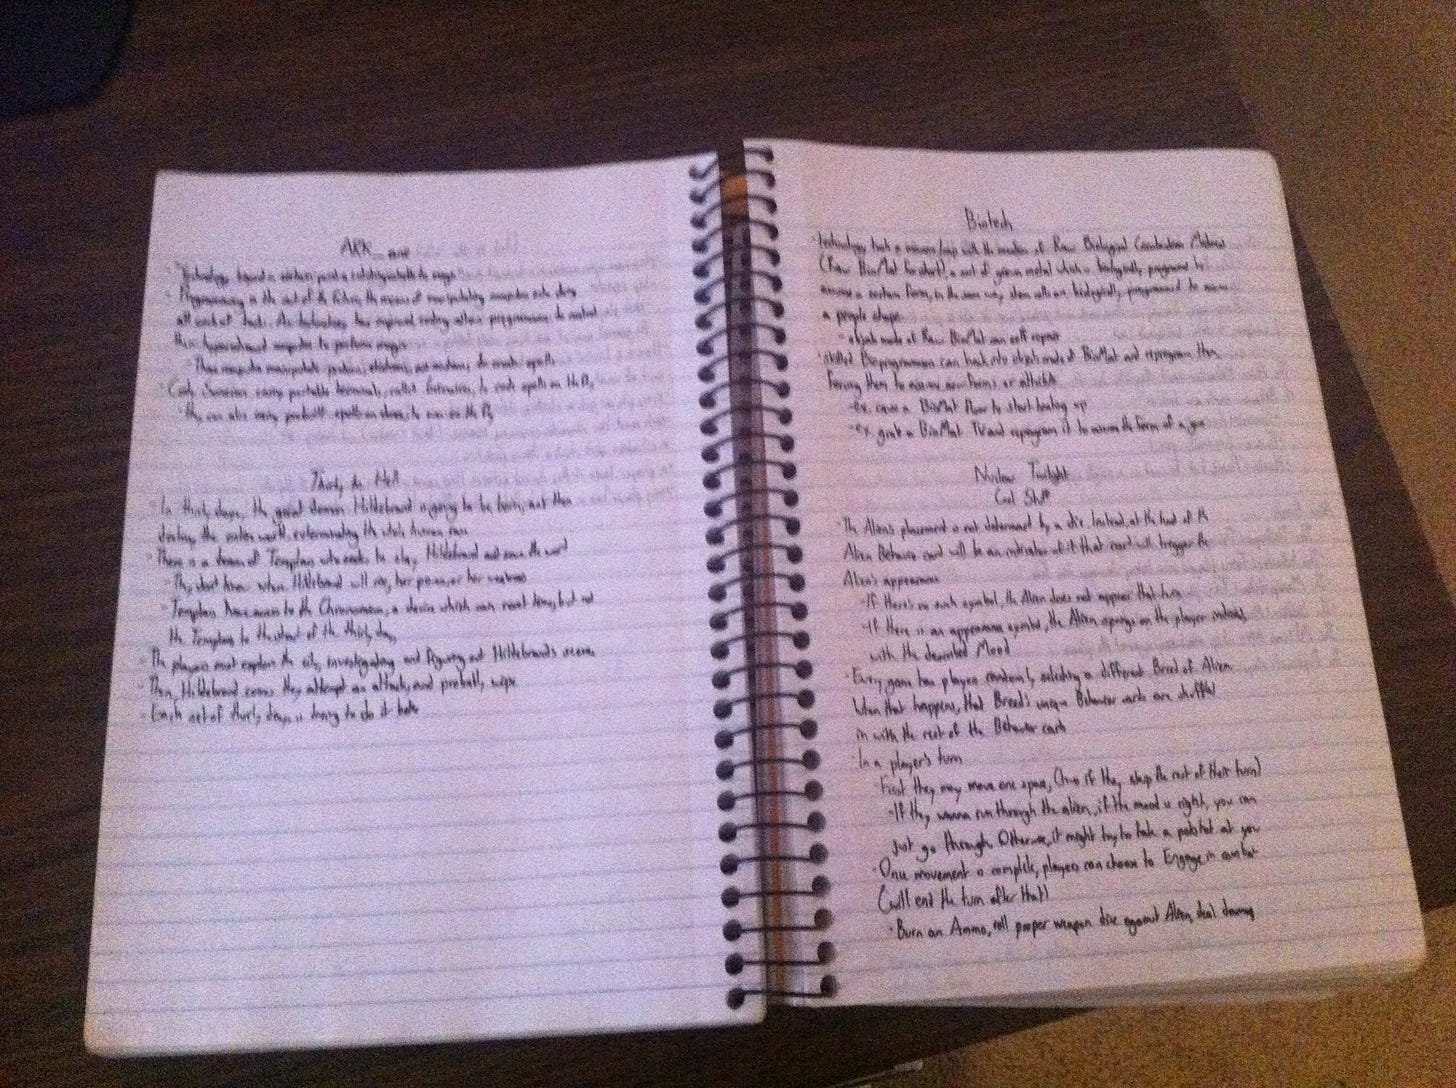 ARK_ane
- "Technology beyond a certain point is indistinguishable to magic"
- Programming is the art of the future, the means of manipulating computers into doing
all sorts of tasks. As technology has improved coding allows programmers to control
their computers to perform magic
- These computers manipulate protons, electrons, and neutrons to create spells
- Code Sorcerers carry portable terminals, called Extensions, to code spells on the fly
- They can also carry prebuilt spells on them, to run on the fly
Thirty to Hell
- In thirty days, the great demon Hildebrand is going to be born, and then
destroy the entire world, exterminating the whole human race
- There is a team of Templars who seeks to slay Hildebrand and save the world
- They don't know when Hildebrand will rise, her power, or her weakness
- Templars have access to the a device which can reset time, but not
the Templars to the start of the thirty days
- The players must explore the city, investigating and figuring out Hildebrand's secrets
- Then, Hildebrand comes, they attempt an attack, and probably wipe
- Each set of thirty days is trying to do it better
Biotech
- Technology took a massive leap with the invention of Raw Biological Construction Material
(Raw BioMat for short), a sort of green metal which is biologically programmed to
assume a certain form, in the same way stem cells are biologically programmed to assume
a proper shape
- objects made of Raw BioMat can self repair
- skilled Bioprogrammers can hack into objects made of BioMat and reprogram them
forcing them to assume new forms or attributes
- ex. cause a BioMat floor to start heating up
- ex. grab a BioMat TV and reprogram it to assume the form of a gun
Nuclear Twilight
Cool Stuff
- The Alien's placement is not determined by a die. Instead, at the foot of the
Alien Behavior card will be an indicator of if that card will trigger the
Alien's appearance
- If there's no such symbol, the Alien does not appear that turn
- If there is an appearance symbol, the Alien springs on the player
with the described Mood
- Every game has players randomly selecting a different Breed of Alien
When that happens, that Breed's unique Behavior cards are shuffled
in with the rest of the Behavior cards
- In a player's turn
- First they may move one space, (two if they skip the rest of their turn)
- If they wanna run through the alien, if the mood is right, you can
just go through. Otherwise, it might try to take a potshot at you
- Once movement is complete, players can choose to Engage in combat
(will end the turn after that)
- Burn an Ammo, roll proper weapon dice against Alien, deal damage